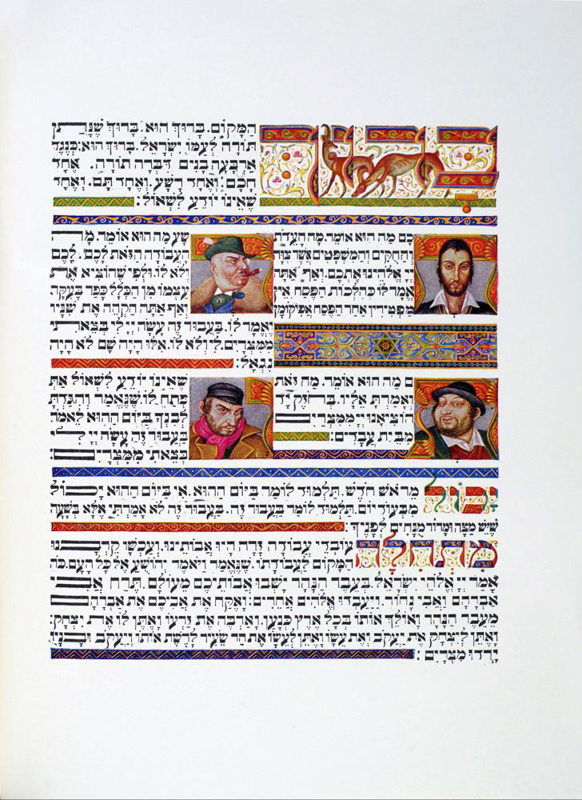 בָּרוּךְ הַמָּקוֹם. בָּרוּךְ הוּא: בָּרוּךְ שֶׁנָּתַן
תּוֹרָה לְעַמּוֹ יִשְׂרָאֵל. בָּרוּךְ הוּא: כְּנֶגֶד
אַרְבָּעָה בָנִים דִּבְּרָה תוֹרָה. אֶחָד
חָכָם. וְאֶחָד רָשָׁע. וְאֶחָד תָּם. וְאֶחָד
שֶׁאֵינוֹ יוֹדֵעַ לִשְׁאוֹל:
חָכָם מַה הוּא אוֹמֵר. מָה הָעֵדוֹת
וְהַחֻקִּים וְהַמִּשְׁפָּטִים אֲשֶׁר צִוָּה
יְיָ אֱלֹהֵינוּ אֶתְכֶם. וְאַף אַתָּה
אֱמָר לוֹ כְּהִלְכוֹת הַפֶּסַח אֵין
מַפְטִירִין אַחַר הַפֶּסַח אֲפִיקוֹמָן
רָשָׁע מַה הוּא אוֹמֵר. מָה
הָעֲבוֹדָה הַזֹּאת לָכֶם. לָכֶם
וְלֹא לוֹ. וּלְפִי שֶׁהוֹצִיא אֶת
עַצְמוֹ מִן הַכְּלָל כָּפַר בָּעִקָּר
וְאַף אַתָּה הַקְהֵה אֶת שִׁנָּיו
וֶאֱמָר לוֹ. בַּעֲבוּר זֶה עָשָׂה יְיָ לִי בְּצֵאתִי
מִמִּצְרָיִם. לִי וְלֹא לוֹ. אִלּוּ הָיָה שָׁם לֹא הָיָה
נִגְאָל:
תָּם מַה הוּא אוֹמֵר. מַה זֹּאת
וְאָמַרְתָּ אֵלָיו. בְּחֹזֶק יָד
הוֹצִיאָנוּ יְיָ מִמִּצְרַיִם
מִבֵּית עֲבָדִים:
שֶׁאֵינוֹ יוֹדֵעַ לִשְׁאוֹל אַתְּ
פְּתַח לוֹ שֶׁנֶּאֱמַר וְהִגַּדְתָּ
לְבִנְךָ בַּיּוֹם הַהוּא לֵאמֹר
בַּעֲבוּר זֶה עָשָׂה יְיָ לִי
בְּצֵאתִי מִמִּצְרָיִם:
יָכוֹל מֵרֹאשׁ חֹדֶשׁ. תַּלְמוּד לוֹמַר בַּיּוֹם הַהוּא. אִי בַּיּוֹם הַהוּא יָכוֹל
מִבְּעוֹד יוֹם. תַּלְמוּד לוֹמַר בַּעֲבוּר זֶה. בַּעֲבוּר זֶה לֹא אָמַרְתִּי אֶלָּא בְּשָׁעָה
שֶׁיֵּשׁ מַצָּה וּמָרוֹר מֻנָּחִים לְפָנֶיךָ:
מִתְּחִלָּה עוֹבְדֵי עֲבוֹדָה זָרָה הָיוּ אֲבוֹתֵינוּ. וְעַכְשָׁו קֵרְבָנוּ
הַמָּקוֹם לַעֲבוֹדָתוֹ. שֶׁנֶּאֱמַר וַיֹּאמֶר יְהוֹשֻׁעַ אֶל כָּל הָעָם. כֹּה
אָמַר יְיָ אֱלֹהֵי יִשְׂרָאֵל. בְּעֵבֶר הַנָּהָר יָשְׁבוּ אֲבוֹתֵיכֶם מֵעוֹלָם. תֶּרַח אֲבִי
אַבְרָהָם וַאֲבִי נָחוֹר. וַיַּעַבְדוּ אֱלֹהִים אֲחֵרִים: וָאֶקַּח אֶת אֲבִיכֶם אֶת אַבְרָהָם
מֵעֵבֶר הַנָּהָר וָאוֹלֵךְ אוֹתוֹ בְּכָל אֶרֶץ כְּנָעַן. וָאַרְבֶּה אֶת זַרְעוֹ וָאֶתֶּן לוֹ אֶת יִצְחָק.
וָאֶתֵּן לְיִצְחָק אֶת יַעֲקֹב וְאֶת עֵשָׂו וָאֶתֵּן לְעֵשָׂו אֶת הַר שֵׂעִיר לָרֶשֶׁת אוֹתוֹ וְיַעֲקֹב וּבָנָיו
יָרְדוּ מִצְרָיִם: